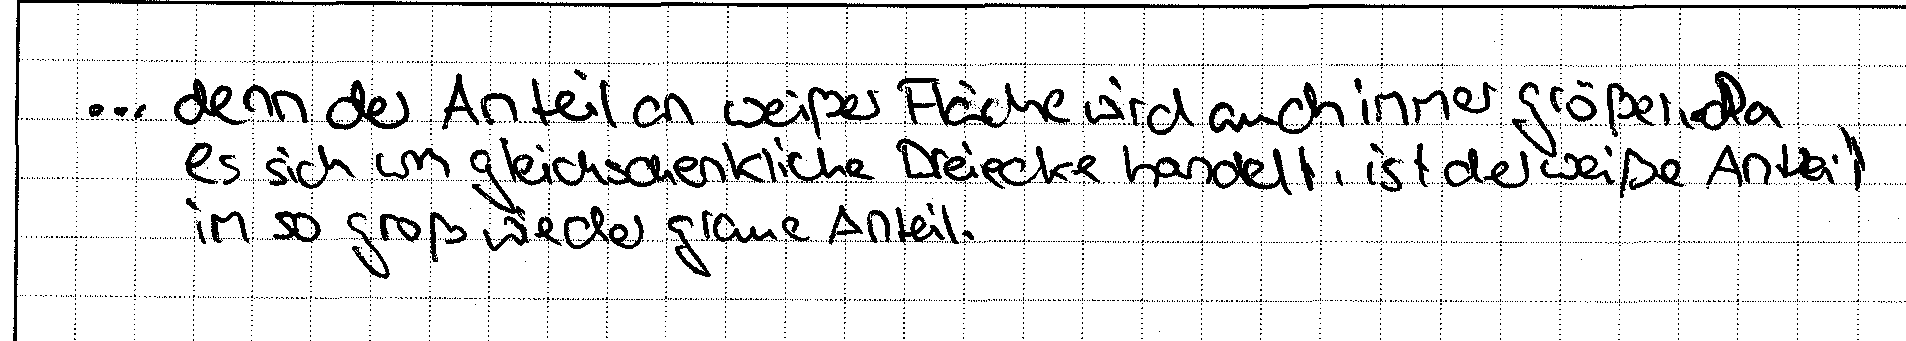 ... denn der Anteil an weißer Fläche wird auch immer größer. Da
es sich um gleichschenkliche Dreiecke handelt, ist der weiße Anteil
im so groß wie der graue Anteil.